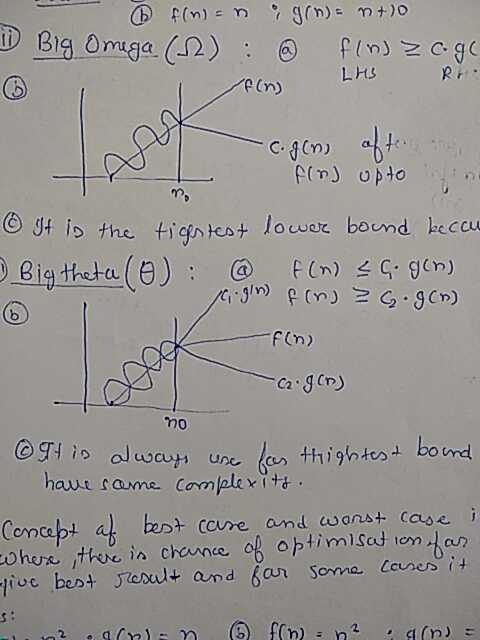 (b) f(n) = n ; g(n) = n+10
(ii) Big Omega (Ω) : (a) f(n) ≥ c.g(
LHS
(b)
f(n)
c.g(n)
f(n) upto
n₀
(c) It is the tightest lower bound becau
Big theta (θ) : (a) f(n) ≤ C₁.g(n)
c₁.g(n) f(n) ≥ C₂.g(n)
(b)
f(n)
c₂.g(n)
n0
(c) It is always use for thightest bound
have same complexity.
Concept of best case and worst case i
where, there is chance of optimisation for
give best result and for some cases it
s:
n² ; g(n) = n (b) f(n) = n² ; g(n) =